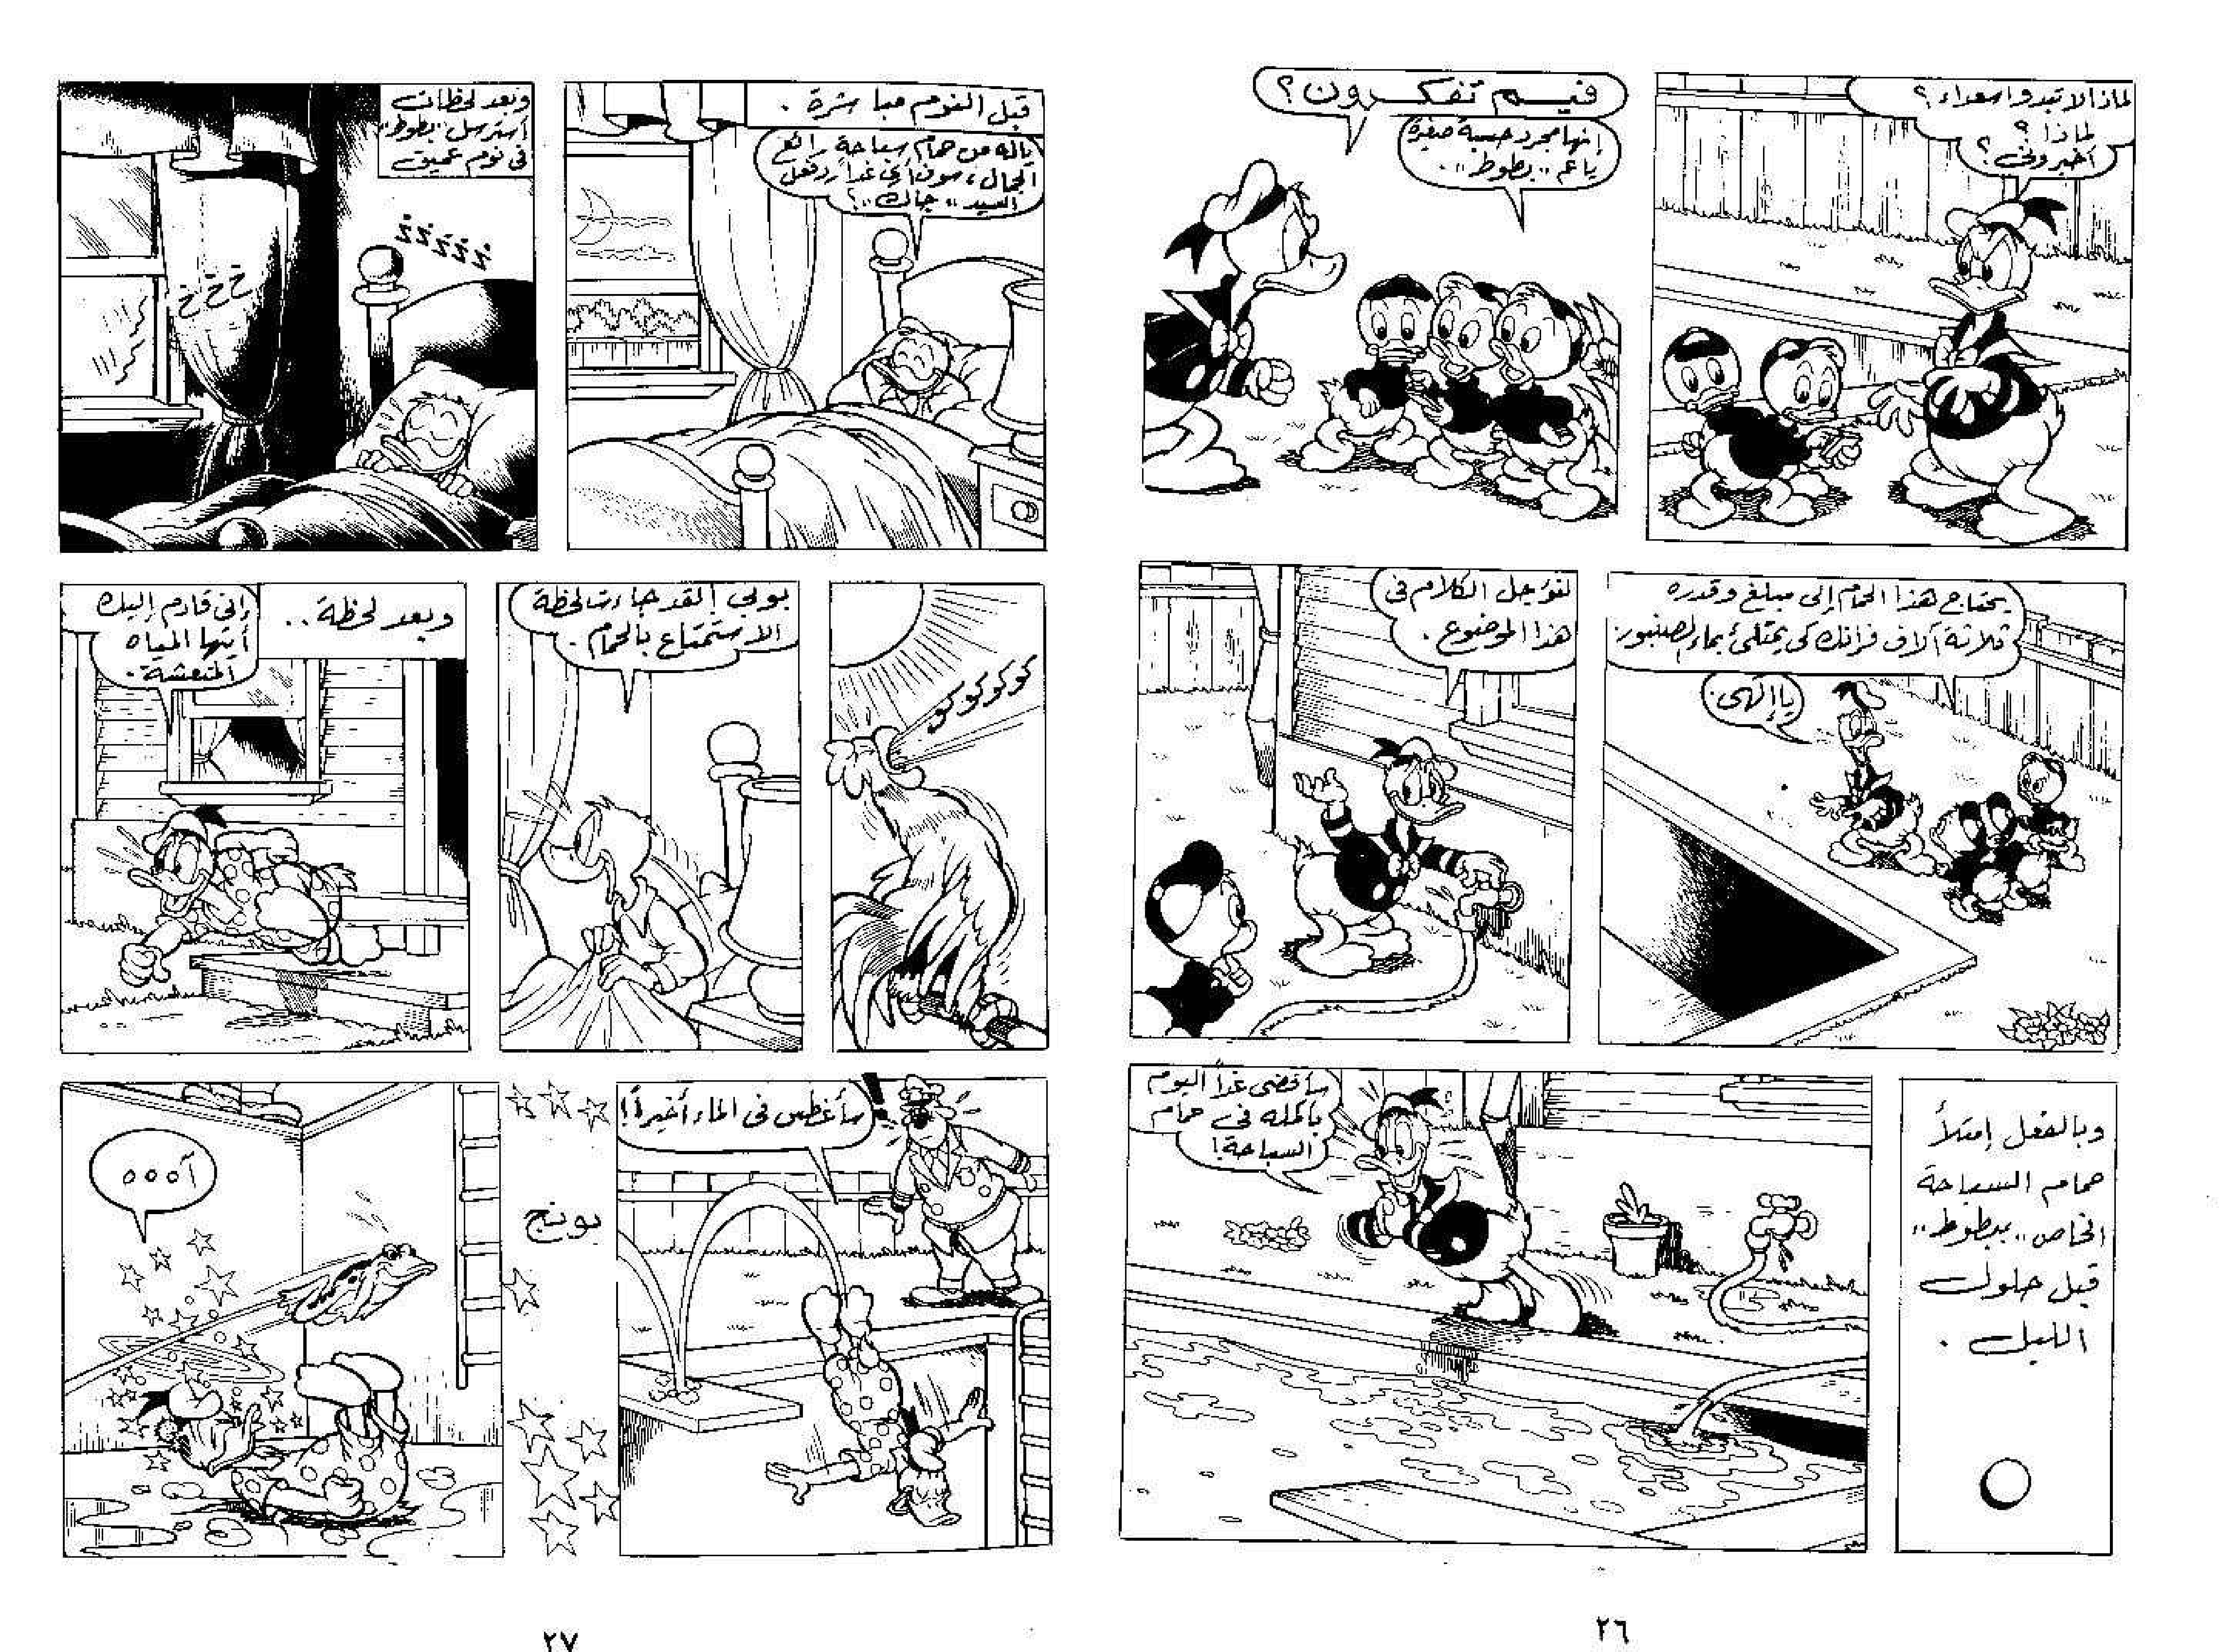 لماذا لا تبدوا سعداء؟
لماذا؟
أخبروني؟
فيم تفكرون؟
إنها مجرد حسبة صغيرة
يا عم "بطوط".
يحتاج هذا الحمام إلى مبلغ وقدره
ثلاثة آلاف فرانك كي يمتلئ بماء الصنبور.
يا إلهي.
لنؤجل الكلام في
هذا الموضوع.
وبالفعل إمتلأ
حمام السباحة
الخاص "ببطوط"
قبل حلول
الليل.
سأقضي غداً اليوم
بأكمله في حمام
السباحة!
٢٦
قبل النوم مباشرة.
ياله من حمام سباحة رائع
الجمال، سوف أرى غداً رد فعل
السيد "جاك"؟
وبعد لحظات
إسترسل "بطوط"
في نوم عميق
ززززز
خخخ
كوكوكوكو
يوبي! لقد جاءت لحظة
الاستمتاع بالحمام.
وبعد لحظة..
إني قادم إليك
أيتها المياه
المنعشة.
سأغطس في الماء أخيراً!
!
بونج
آه ه ه
٢٧